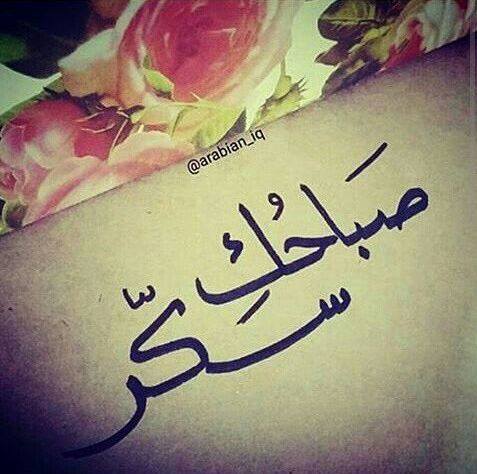 @arabian_iq
صَباحُكِ
سَكّر